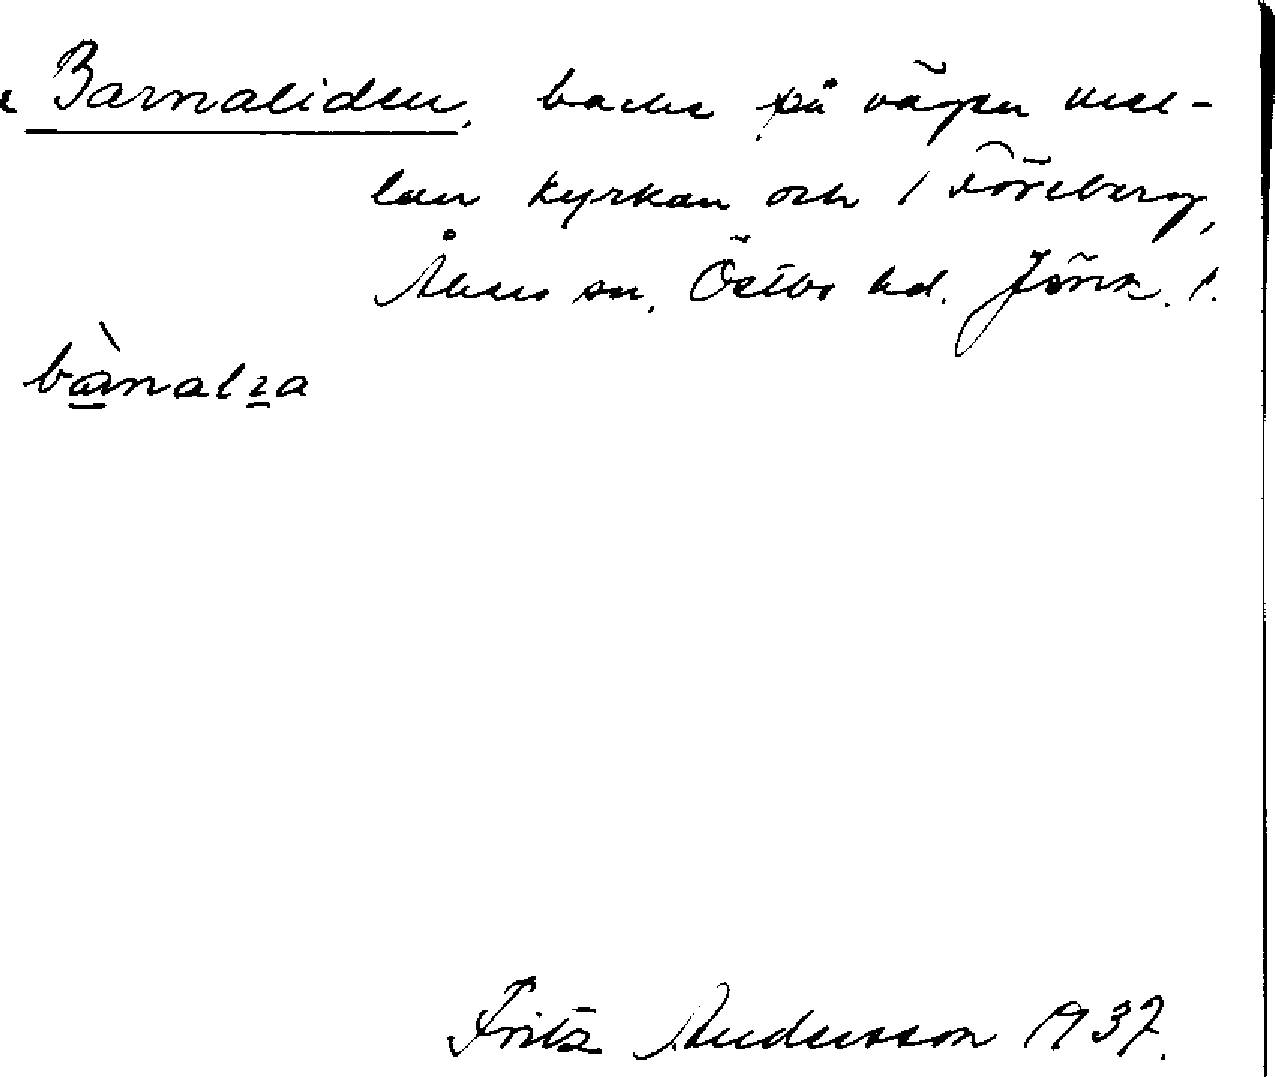 Barnaliden, backe på vägen mel-
lan kyrkan och Föreberg,
Åkers sn, Östbo hd. Jönk. l.
bànalıa
Fritz Andersson 1937.